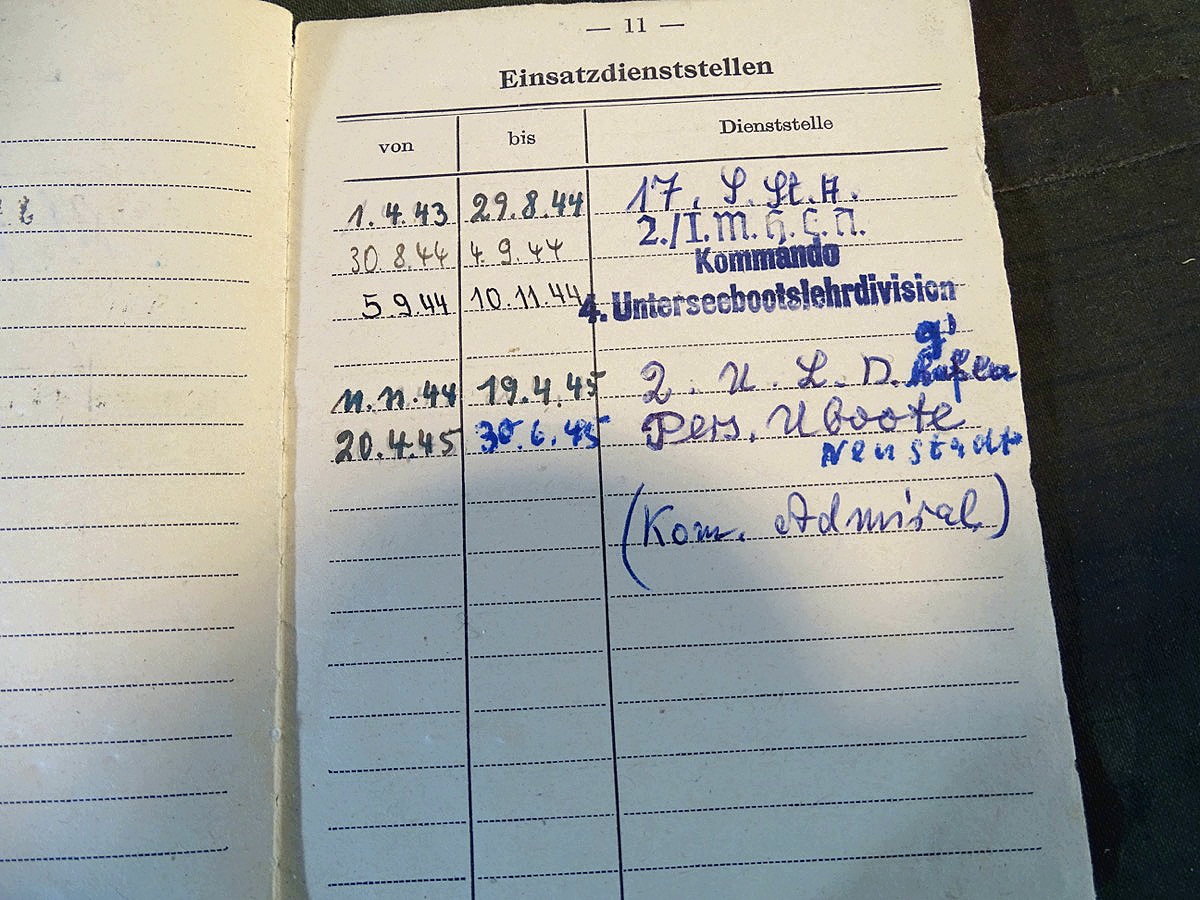 — 11 —
Einsatzdienststellen
von bis Dienststelle
1.4.43 29.8.44 17. S. St. A.
30.8.44 4.9.44 2./I.M.H.C.A.
Kommando
5.9.44 10.11.44 4. Unterseebootslehrdivision
11.11.44 19.4.45 2. U. L. D.
20.4.45 30.6.45 Pers. Uboote
Neustadt
(Kom. Admiral)